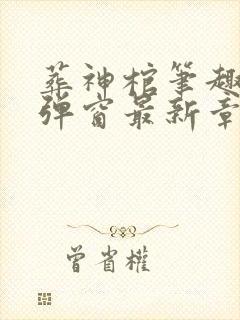 葬神棺筆趣
彈窗最新章
曾省權